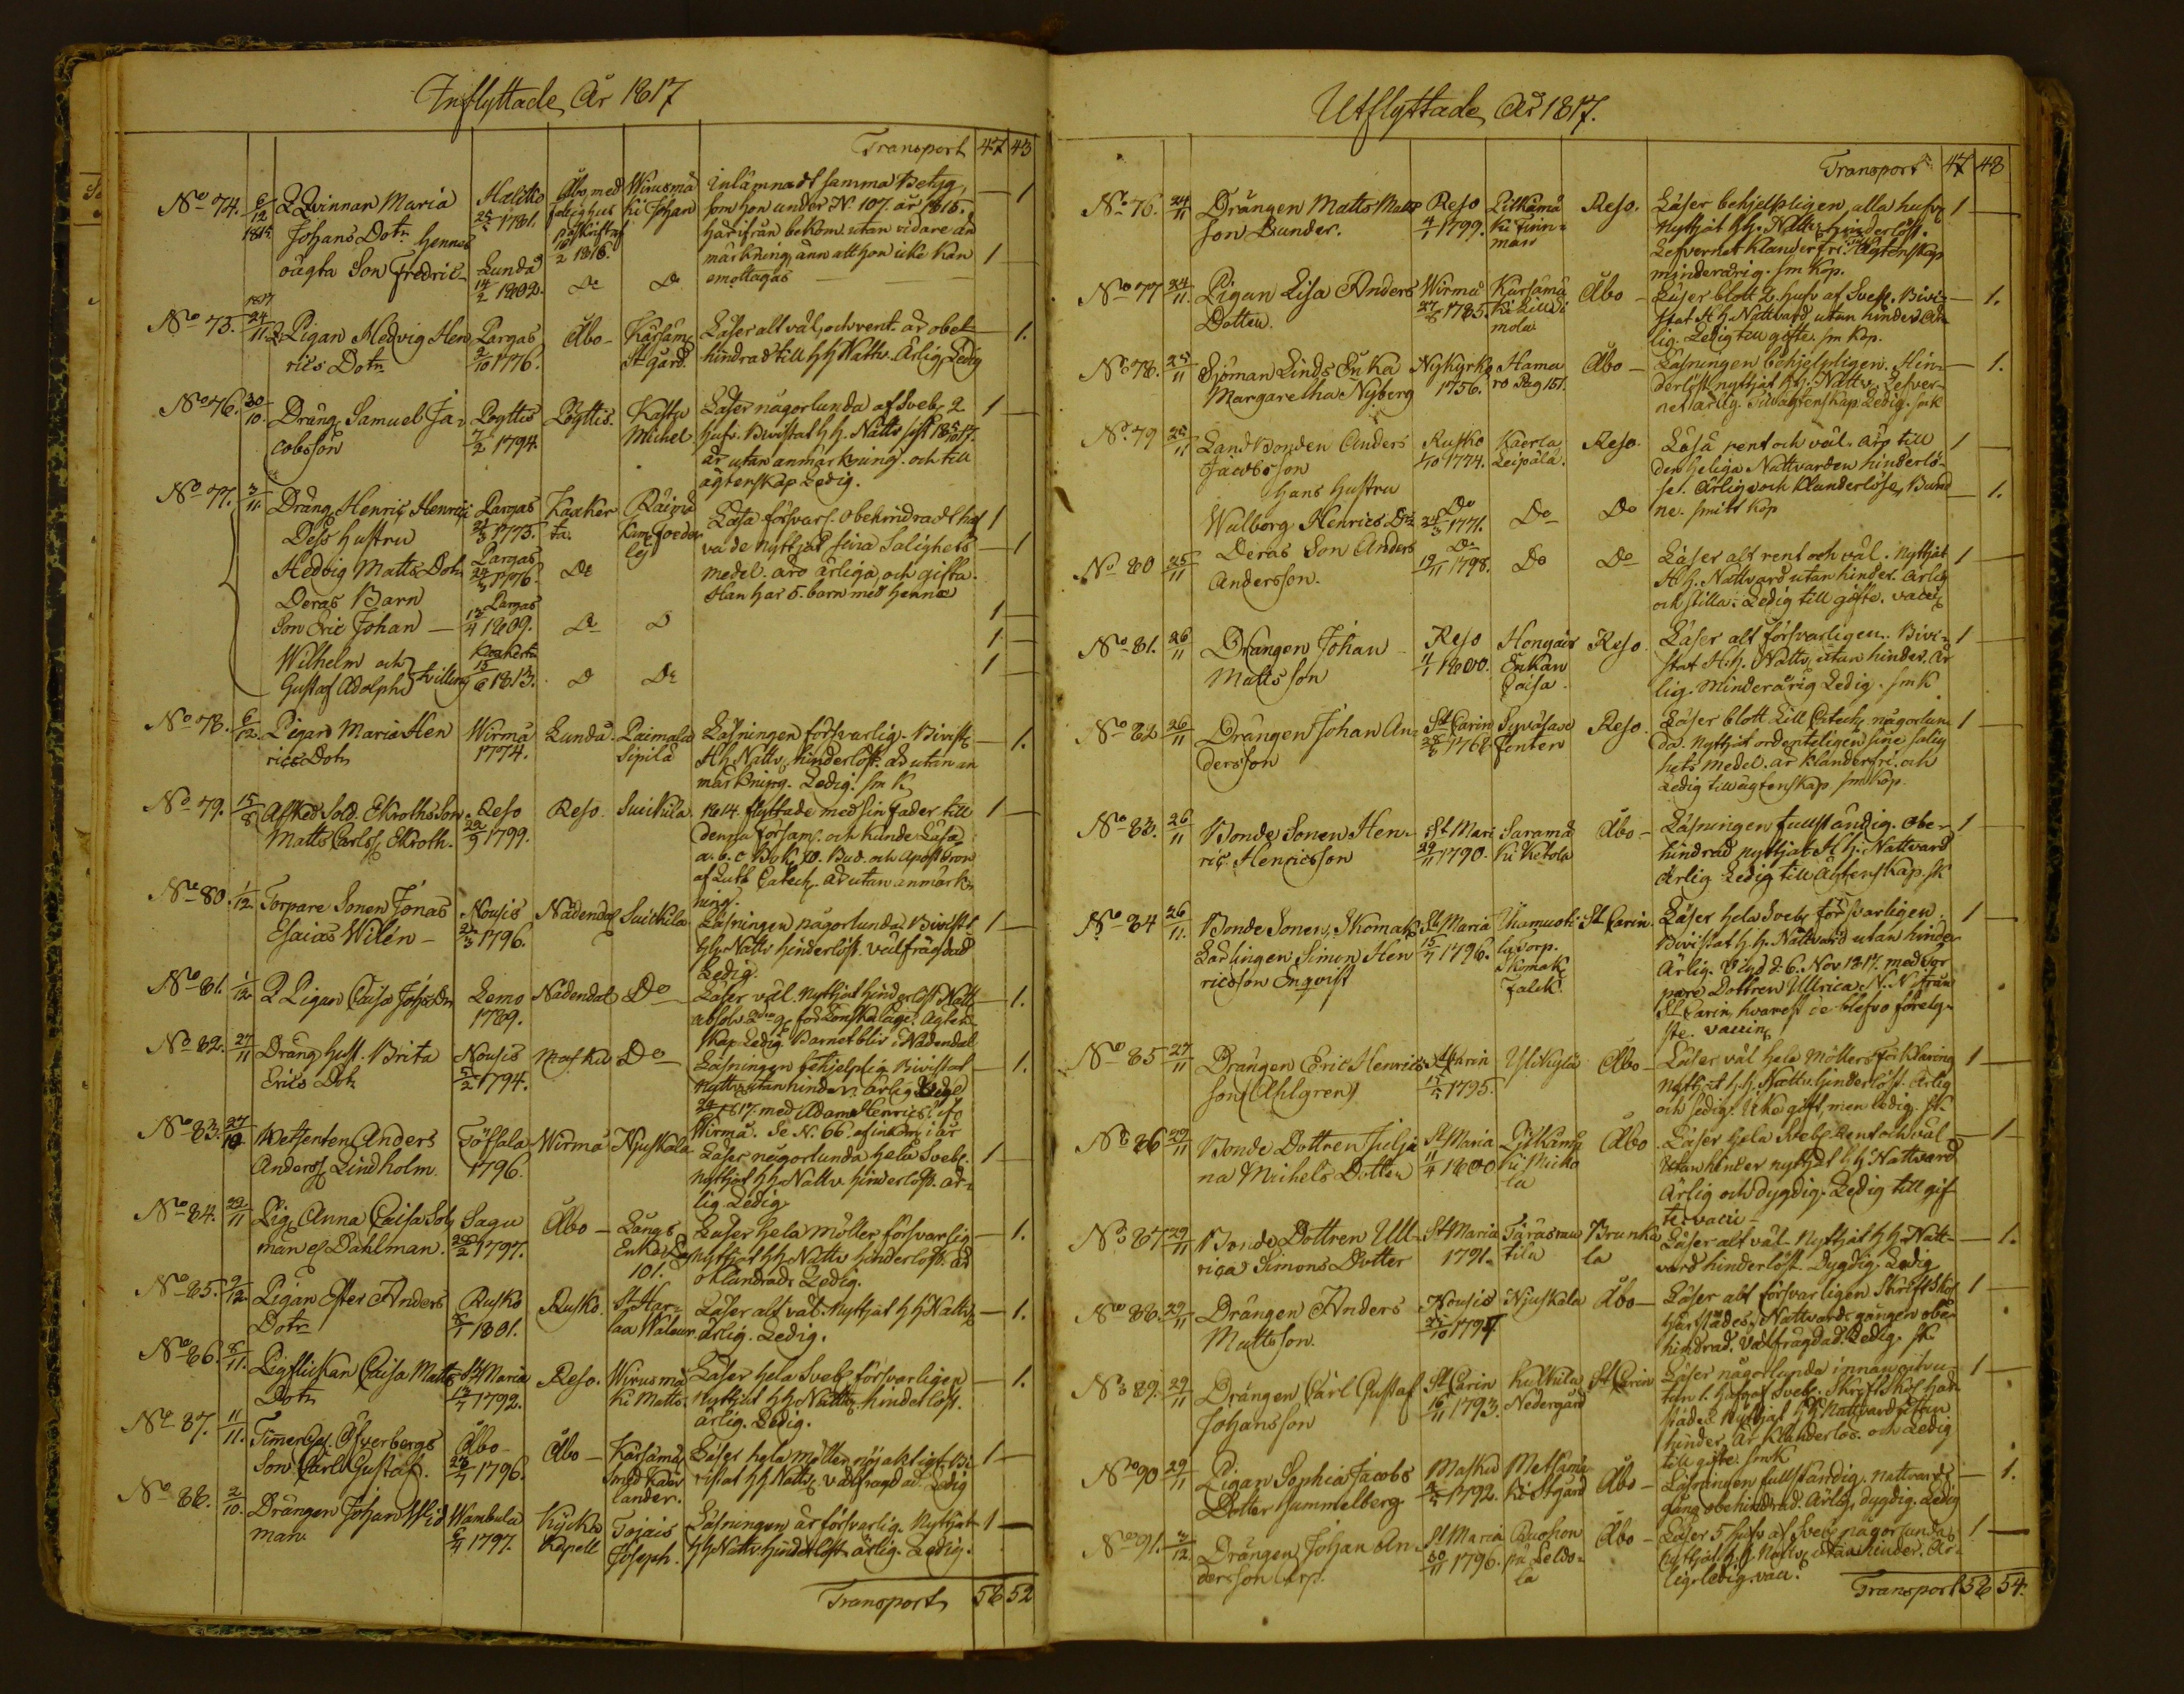 Inflyttade År 1817
Transport 47 43
No 74. 6/12 1815 Qvinnan Maria Johans Dotr hennes oägta Son Fredric
25/5 1781. Lundå 14/2 1802.
Åbo med 10/2 1816. Do
Wirusmä ki Johan Do
inlämnadt samma Betyg,
som hon under N. 107. år 1815.
härifrån bekom utan vidare an
märkning än att hon icke kan
emottagas
1
1
No 75. 1817 24/11 Pigan Hedvig Hen
rics Dotr
Pargas 2/10 1776.
Åbo
Kärsäm St gård.
Läser alt väl, och vent. är obe
hindrad till HH Nattv. Ärlig, Ledig
1.
No 76. 30/10. Dräng Samuel Ja
cobsson
Pyttis 7/2 1794.
Pyttis.
Kastu Michel
Läser någorlunda af Sveb. 2
hufv. Bivistat h h. Nattv sist
är utan anmärkning. och till
ägtenskap Ledig.
1
No 77. 3/11. Dräng Henric Henrics
Dess hustru
Hedvig Matts Dotr
Deras Barn
Son Eric Johan
Wilhelm och
Gustaf Adolph tvilling
Pargas 1775.
Pargas 24/3 1776.
Pargas 12/4 1809.
15/6 1813.
Kaaker ta.
Do
Läsa försvarl. obehindradt haf
va de nyttjat sina Salighets
medel. äro ärliga, och gifta.
Han har 5. barn med henne
1
1
1
1
1
No 78. 6/12. Pigan Maria Hen
rics Dotr
Wirmå 1774.
Lundå.
Raimala Sipilä
Läsningen försvarlig. Bivist
Hh Nattv. hinderlöst. är utan an
märkning. Ledig. sm K
1.
No 79. 15/8 Afsked Sold. Ekroths Son
Matts Carlss Ekroth.
Reso 22/9 1799.
Reso.
Suickila.
1814. flyttade med sin fader till
denna församl. och kunde Läsa
a. b. c Bok, 10. Bud. och Apost. tron
af Luth Catech. är utan anmärk
ning.
1
No 80. 1/12. Torpare Sonen Jonas
Esaias Wilén
Nousis 1796.
Nådendal
Suickila
Läsningen någorlunda. Bivist
hh. Nattv hinderlöst. välfrägdad
Ledig.
1
No 81. 1/12 Pigan Caisa Johs Dr
Lemo 1789.
Nådendal
Do
Läser väl. nyttjat hinderlöst Nattv
absolv. 2dra g. för Lönskaläge. Ägten
skap Ledig. Barnet blir i Nådendal
1.
No 82. 27/11 Dräng hust. Brita
Erics Dotr
Nousis 5/2 1794.
Masku
Do
Läsningen behjelplig. Bivistat
Nattv. utan hinder. Ärlig.
1817. med Adam Henrics. ifr
Wirmå. Se N. 66. af inkom i år
1.
No 83. 27/12 Anders
Anderss Lindholm.
Töfsala 1796.
Wirmå
Njuskala
Läser någorlunda hela Sveb.
nyttjat hh Nattv hinderlöst. är
lig. Ledig
1
No 84. 29/11 Pig. Anna Caisa
man el Dahlman.
Sagu 20/2 1797.
Åbo
Långs
101.
Läser hela Möller försvarlig
nyttjat hh Nattv hinderlöst. är
oklandrad. Ledig.
1.
No 85. 9/12. Pigan Ester Anders
Dotr
Rusko 8/1 1801.
Rusko.
Läser alt väl. Nyttjat hh Nattv
ärlig. Ledig.
1.
No 86. 8/11. Pigflickan Caisa Matts
Dotr
St Maria 13/7 1792.
Reso.
Wirusmä ki Matts.
Läser hela Sveb försvarligen
Nyttjat hh Nattv hinderlöst.
ärlig. Ledig.
1.
No 87. 11/11. Timerm. Öfverbergs
Son Carl Gustaf.
Åbo 26/7 1796.
Åbo
Kärsämä med
lander.
Läser hela Möller nöjaktigt. Bi
vistat hh Nattv. välfrägdad. Ledig
1
No 88. 2/10. Drängen Johan Wid
man.
Wambula 6/7 1797.
Kjickis Kapell
Tojais Joseph.
Läsningen är försvarlig. Nyttjat
hh Nattv hinderlöst. ärlig. Ledig.
1
Transport 56 52
Utflyttade År 1817.
Transport 47 48
No 76. 24/11 Drängen Matts Matts
son Sunder.
Reso 4/1 1799.
Pitkämä ki Finn=
man
Reso.
Läser behjelpligen alla hufv
nyttjat hh. Nattv. hinderlöst.
Lefvernet klanderfri. ägtenskap
minderårig. sm Kop.
1
No 77 24/11. Pigan Lisa Anders
Dotter.
Wirmå 27/8 1785.
Kärsämä
mola
Åbo
Läser blott 2. hufv af Sveb. Bivi=
stat H h. Nattvard utan hinder. Är
lig. Ledig till gifte. sm Kop.
1.
No 78. 25/11 Sjöman Linds Enka
Margaretha Nyberg
Nykyrko 1756.
Hama ro Pag 151.
Åbo
Läsningen behjelpligen. Hin=
derlöst nyttjat hh. Nattv. Lefver=
net ärlig. Till ägtenskap Ledig. smk
1.
No 79 25/11 Landbonden Anders
Jacobsson
hans hustru
Walborg Henrics Dr
Rusko 1/10 1774.
Do 24/3 1771.
Kaerla Leipälä.
Do
Reso.
Do
Läsa rent och väl. äro till
den heliga Nattvarden hinderlö=
se. Ärliga och Klanderlöse, Bund
ne. smitt kop
1
1.
No 80 25/11 Deras Son Anders
Andersson.
Do 12/11 1798.
Do
Do
Läser alt rent och väl. Nyttjat
H h. Nattvard utan hinder. ärlig
och stilla. Ledig till gifte. vacc
1
No 81. 26/11 Drängen Johan
Matts son
Reso 11/1 1800.
Hongais Enkan Caisa.
Reso.
Läser alt försvarligen. Bivi=
stat H.h. Nattv. utan hinder. Är
lig. Minderårig Ledig. sm K
1
No 82. 26/11 Drängen Johan An=
dersson
St Carin 1768.
Reso.
Läser blott Lill Catech någorlun
da. nyttjat ordenteligen sine salig
hets medel. är klanderfri. och
Ledig till ägtenskap sm kop.
1
No 83. 26/11 Bonde Sonen Hen=
ric Henricsson
St Mari 29/11 1790.
Saramä ki Ketola
Åbo
Läsningen fullständig. obe=
hindrad nyttjat H h. Nattvard
Ärlig Ledig till Ägtenskap. sk
1
No 84 26/11. Bonde Sonen, Skomak
Lärlingen Simon Hen
ricsson Enqvist
St Maria 15/7 1796.
torp. Skomak. Falck.
St Carin.
Läser hela Sveb försvarligen
Bivistat h h. Nattvard utan hinder
Ärlig. d. 6. Nov 1817. med Tor
pare Dottren Ullrica N. N. från
St Carin, hvarest de blefvo förelys
ste. vaccin
1
No 85 27/11 Drängen Eric Henrics
son (Ahlgren)
St Carin 1795.
Ylikylä
Åbo
Läser väl hela Möllers förklaring
Nyttjat h h. Nattv. hinderlöst. Ärlig
och sedig. Icke gift, men ledig. sk
1
No 86 29/11 Bonde Dottren Julja
na Michels Dotter
St Maria 11/4 1800
Pitkämä ki Micko la
Åbo
Läser hela Sveb Rent och väl
utan hinder nyttjat hh Nattvard
Ärlig och dygdig. Ledig till gif
te. vacci
1
No 87 29/11 Bonde Dottren Ull=
rica Simons Dotter
St Maria 1791.
Brunka la
Läser alt väl. Nyttjat hh. Natt=
vard hinderlöst. Dygdig. Ledig
1.
No 88. 29/11 Drängen Anders
Mattsson.
Nousis 21/10 1797
Njuskala
Åbo
Läser alt försvarligen Skriftskol
härstädes, Nattvards gången obe
hindrad. välfrägdad. Ledig. sk
1
No 89. 29/11 Drängen Carl Gustaf
Johansson
St Carin 16/11 1793.
Nedergård
St Carin
Läser någorlunda innan och u
tan 1. hufvst Sveb. Skriftskol här
städes. Nyttjat hh Nattvard utan
hinder. är Klanderlös. och Ledig
till gifte. smk
1
No 90 29/11 Pigan Sophia Jacobs
Dotter Hammelberg
Masku 1792.
Metsämä ki Stgård
Åbo
Läsningen fullständig. Nattvards
gång obehindrad. Ärlig, dygdig. Ledig
1.
No 91. 3/12 Drängen Johan An=
dersson Arp.
St Maria 30/11 1796.
Ruohon pä Seldo=
la
Åbo
Läser 5 hufv af Sveb någorlunda
nyttjat h. h. Nattv. utan hinder. Är
lig. ledig. vacc.
1
Transport 56 54.